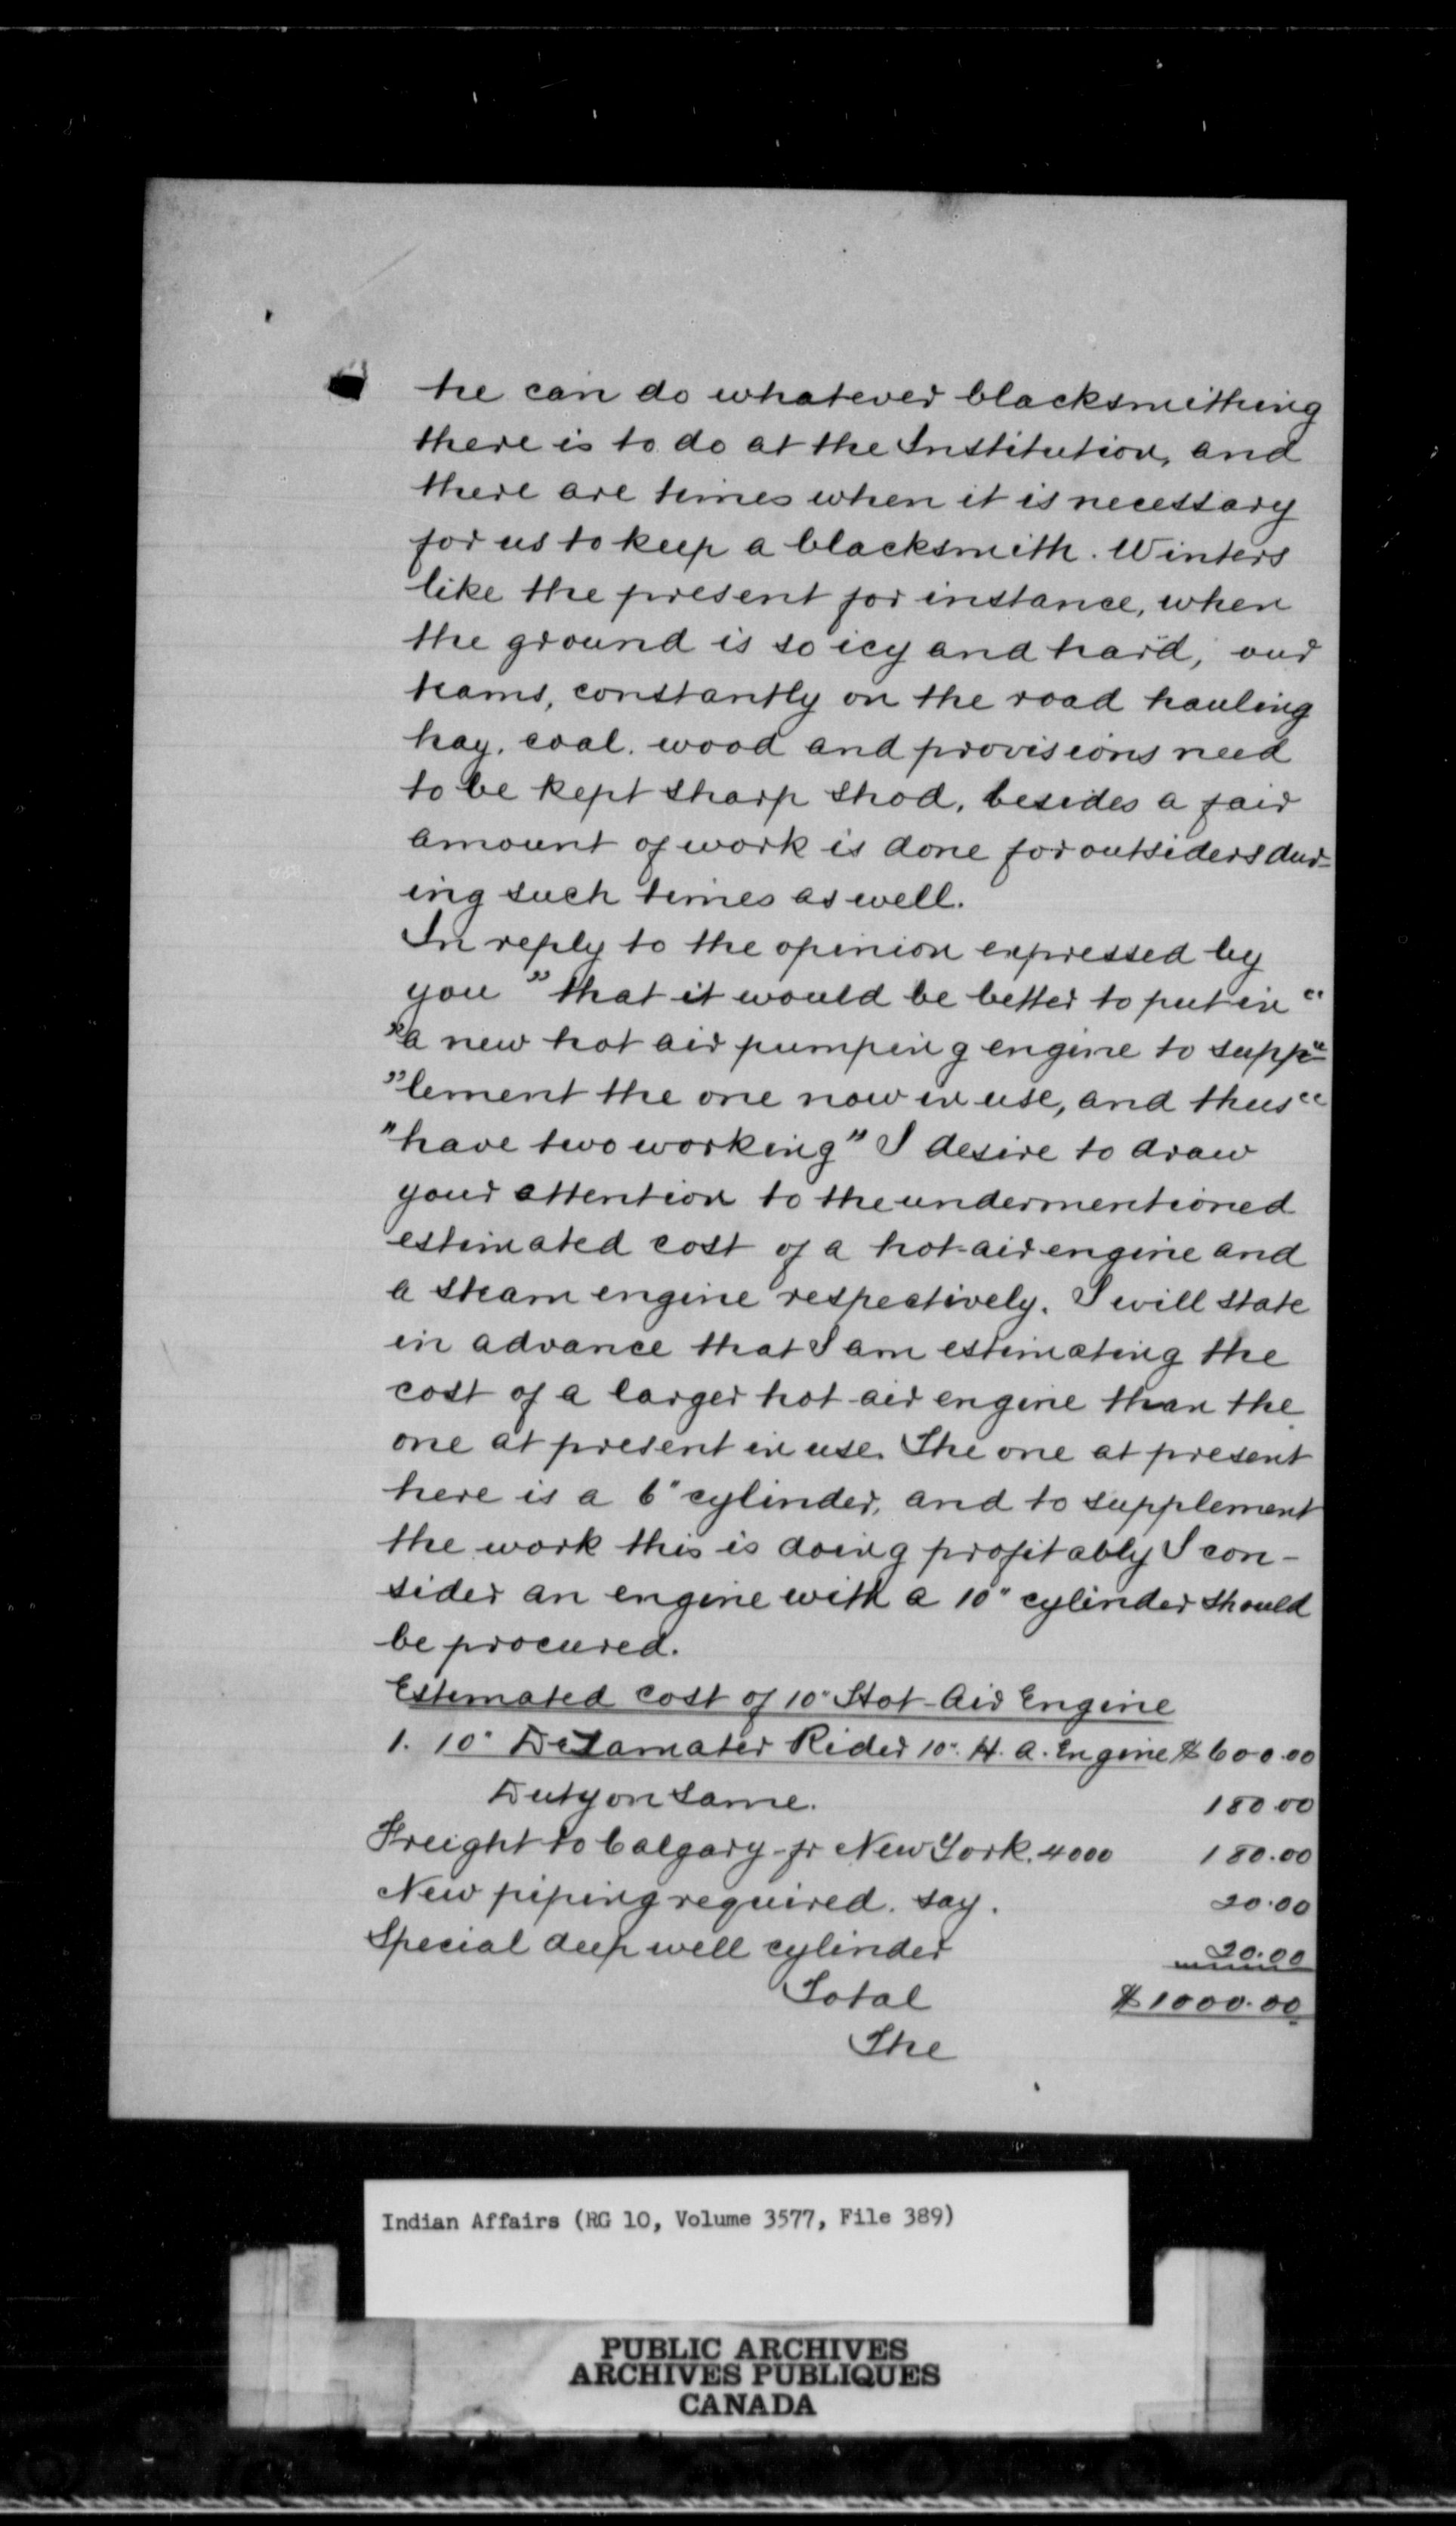 he can do whatever blacksmithing
there is to do at the Institution, and
there are times when it is necessary
for us to keep a blacksmith. Winters
like the present for instance, when
the ground is so icy and hard, our
teams, constantly on the road hauling
hay, coal, wood and provisions need
to be kept sharp shod, besides a fair
amount of work is done for outsiders dur-
ing such times as well.
In reply to the opinion expressed by
you "that it would be better to put in"
"a new hot air pumping engine to supp-"
"lement the one now in use, and thus"
"have two working" I desire to draw
your attention to the undermentioned
estimated cost of a hot-air engine and
a steam engine respectively. I will state
in advance that I am estimating the
cost of a larger hot-air engine than the
one at present in use. The one at present
here is a 6" cylinder, and to supplement
the work this is doing profitably I con-
sider an engine with a 10" cylinder should
be procured.
Estimated cost of 10" Hot-Air Engine
1. 10" DeLamater Rider 10". H. A. Engine $600.00
Duty on same. 180.00
Freight to Calgary-fr New York. 4000 180.00
New piping required. say. 20.00
Special deep well cylinder 20.00
Total $1000.00
The
Indian Affairs (RG 10, Volume 3577, File 389)
PUBLIC ARCHIVES
ARCHIVES PUBLIQUES
CANADA